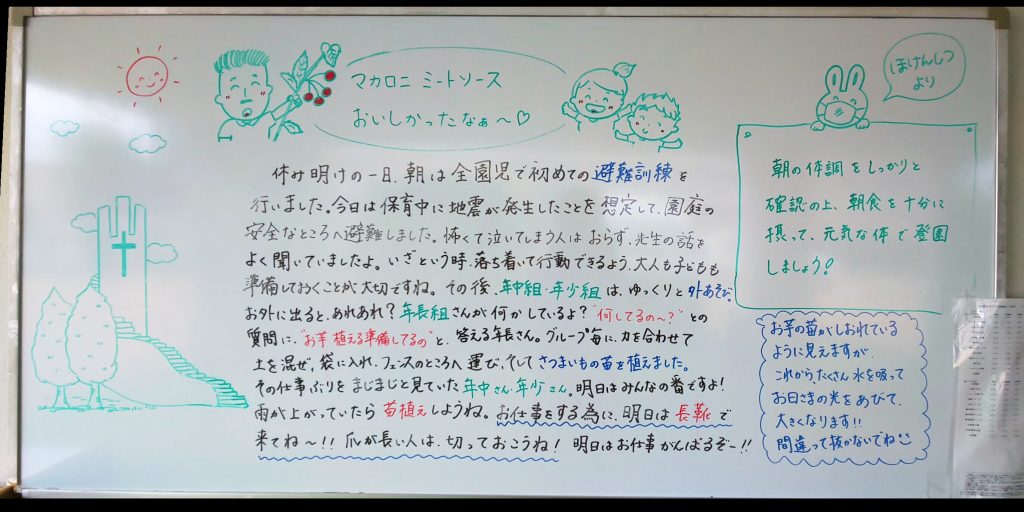 マカロニ ミートソース
おいしかったなぁ〜♡
休み明けの一日、朝は全園児で初めての避難訓練を
行いました。今日は保育中に地震が発生したことを想定して、園庭の
安全なところへ避難しました。怖くて泣いてしまう人はおらず、先生の話を
よく聞いていましたよ。いざという時、落ち着いて行動できるよう、大人も子どもも
準備しておくことが大切ですね。その後、年中組・年少組は、ゆっくりと外あそび。
お外に出ると、あれあれ?年長組さんが何かしているよ?"何してるの〜?"との
質問に、"お芋植える準備してるの"と、答える年長さん。グループ毎に、力を合わせて
土を混ぜ、袋に入れ、フェンスのところへ運び、そしてさつまいもの苗を植えました。
その仕事ぶりをまじまじと見ていた年中さん・年少さん。明日はみんなの番ですよ!
雨が上がっていたら苗植えしようね。お仕事をする為に、明日は長靴で
来てね〜!!爪が長い人は、切っておこうね!明日はお仕事がんばるぞー!!
ほけんしつ
より
朝の体調をしっかりと
確認の上、朝食を十分に
摂って、元気な体で登園
しましょう!
お芋の苗がしおれている
ように見えますが、
これからたくさん水を吸って
お日さまの光をあびて、
大きくなります!!
間違って抜かないでね